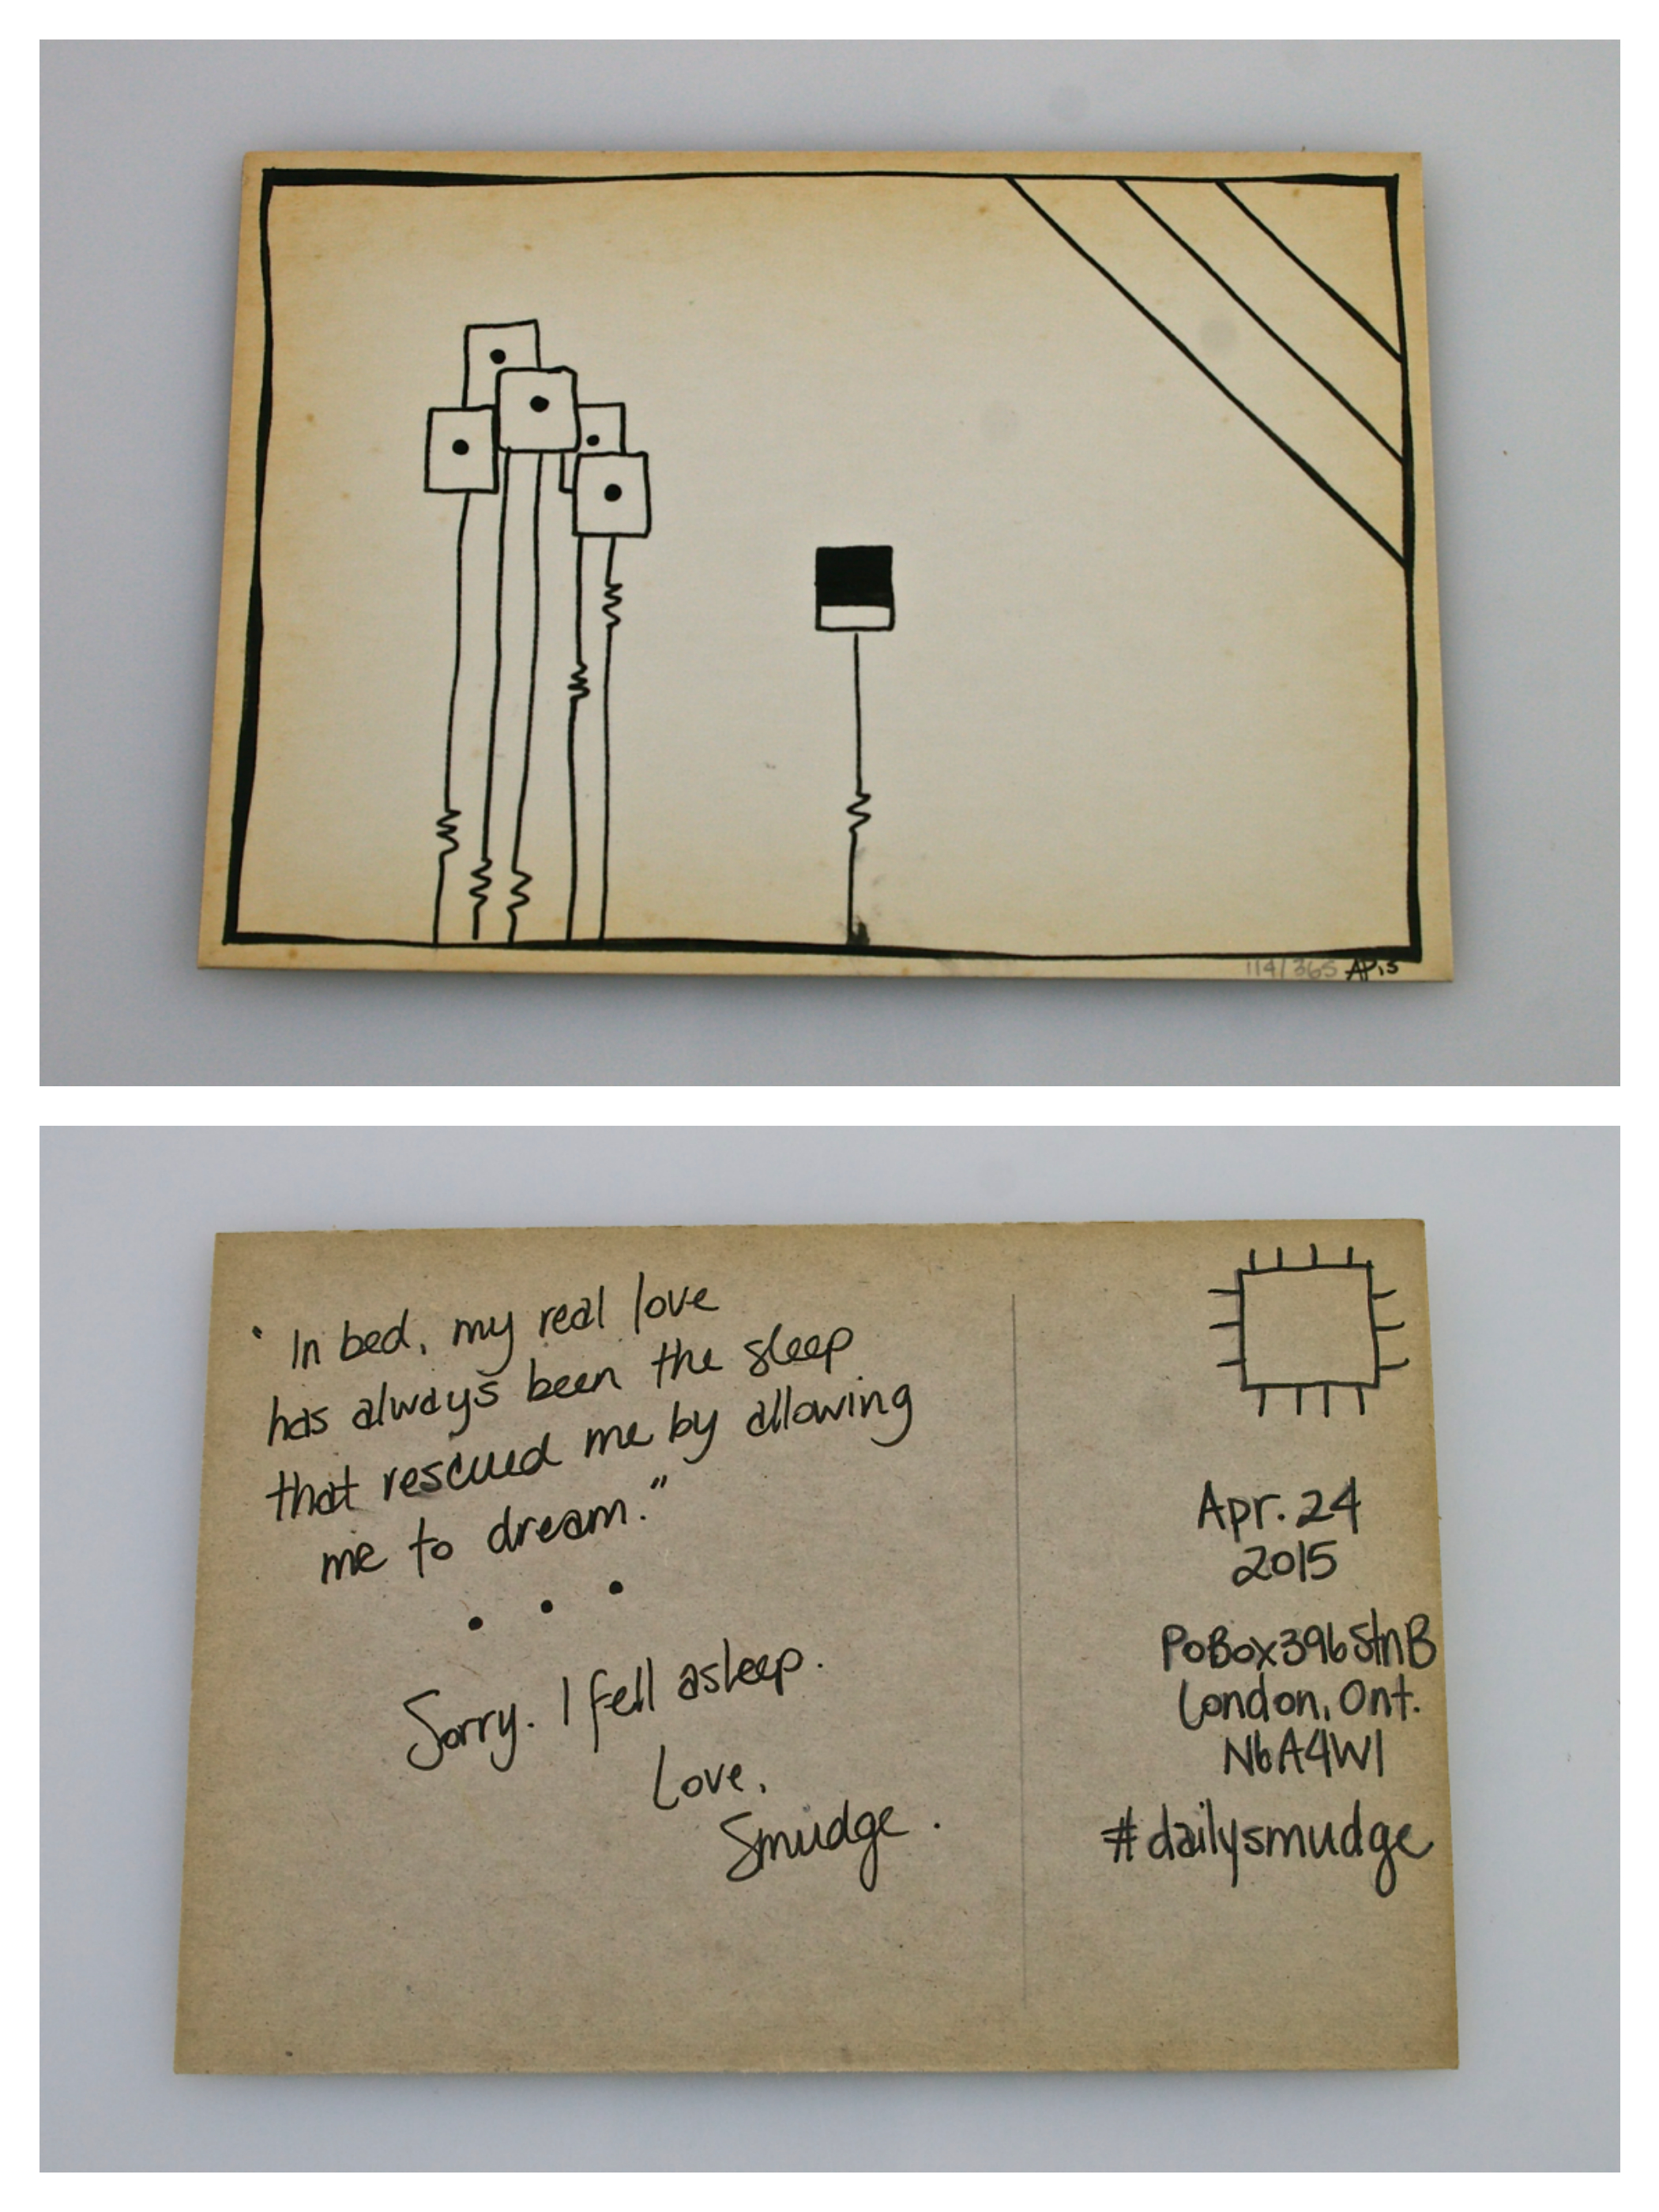 114/365 AP15
" In bed, my real love
has always been the sleep
that rescued me by allowing
me to dream."
. . .
Sorry. I fell asleep.
Love,
Smudge.
Apr. 24
2015
PoBox396StnB
London, Ont.
N6A4W1
#dailysmudge